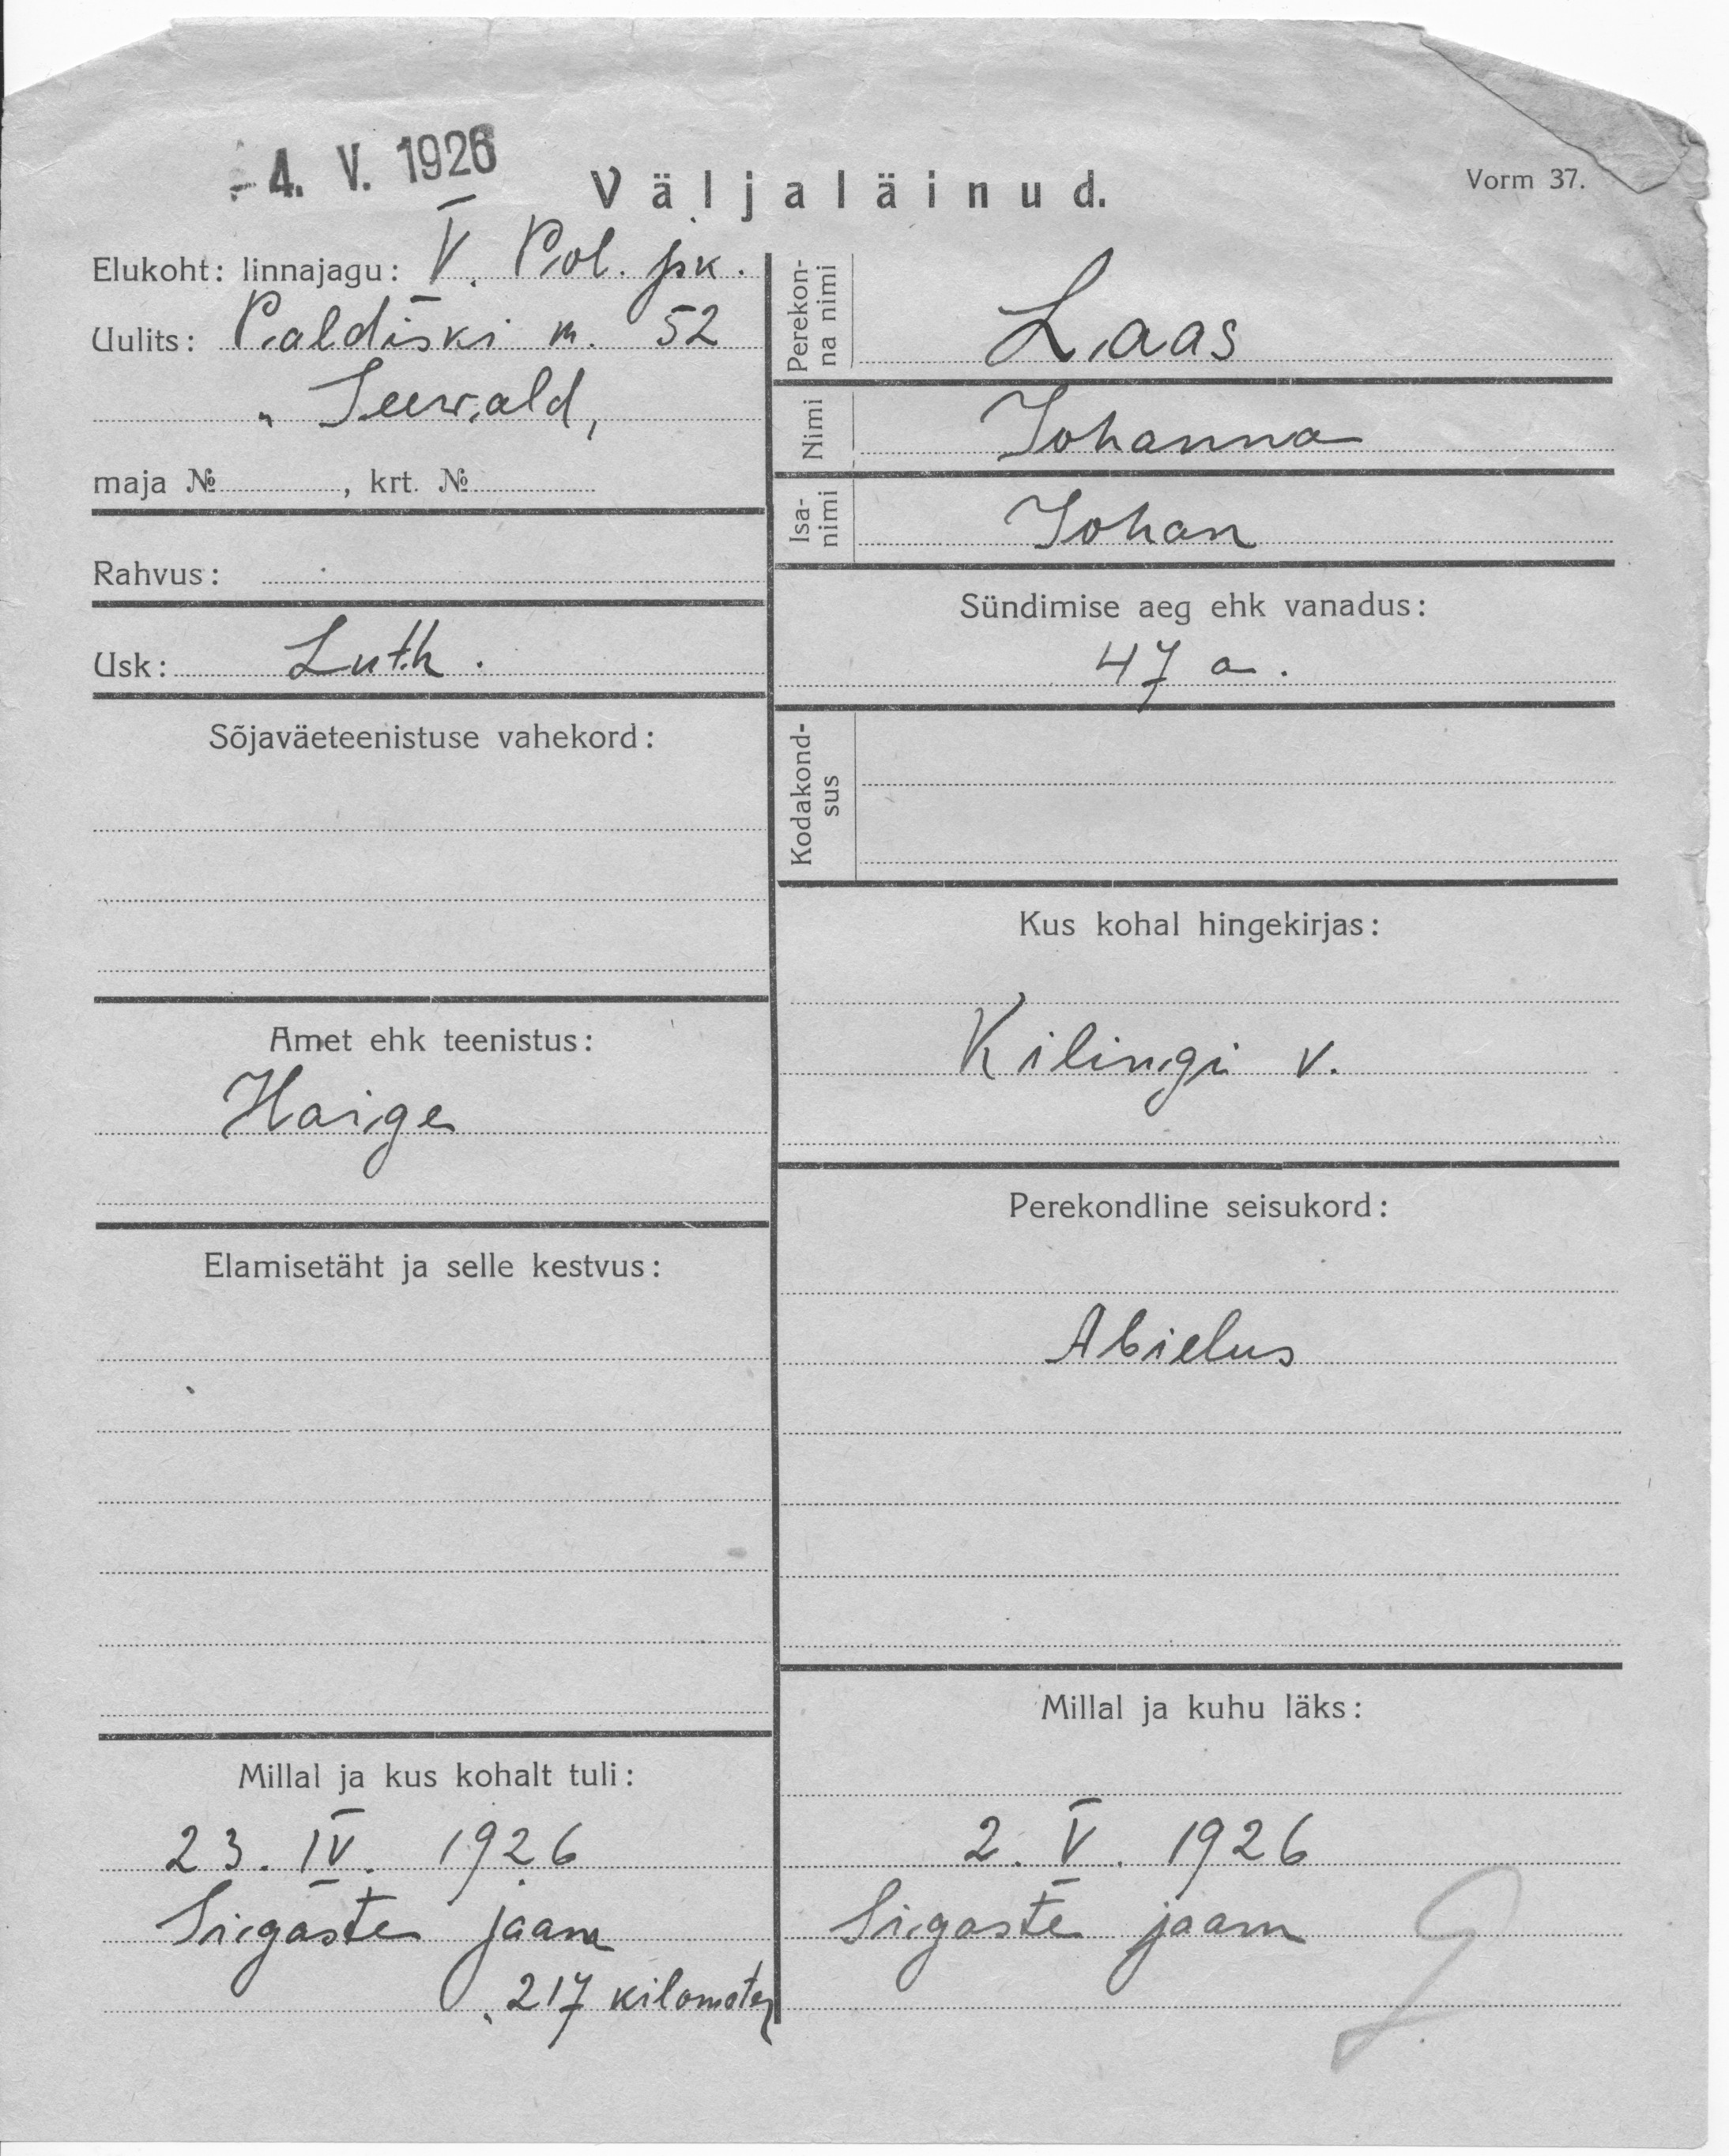 - 4. V. 1926
Väljaläinud.
Vorm 37.
Elukoht: linnajagu: V. Pol. jsk.
Uulits: Paldiski m. 52
" Seewald,
maja №, krt. №
Rahvus:
Usk: Luth.
Sõjaväeteenistuse vahekord:
Amet ehk teenistus:
Haige
Elamisetäht ja selle kestvus:
Millal ja kus kohalt tuli:
23. IV. 1926
Sigaste jaam
217 kilometer
Perekon-
na nimi
Laas
Nimi
Johanna
Isa-
nimi
Johan
Sündimise aeg ehk vanadus:
47 a.
Kodakond-
sus
Kus kohal hingekirjas:
Kilingi v.
Perekondline seisukord:
Abielus
Millal ja kuhu läks:
2. V. 1926
Sigaste jaam